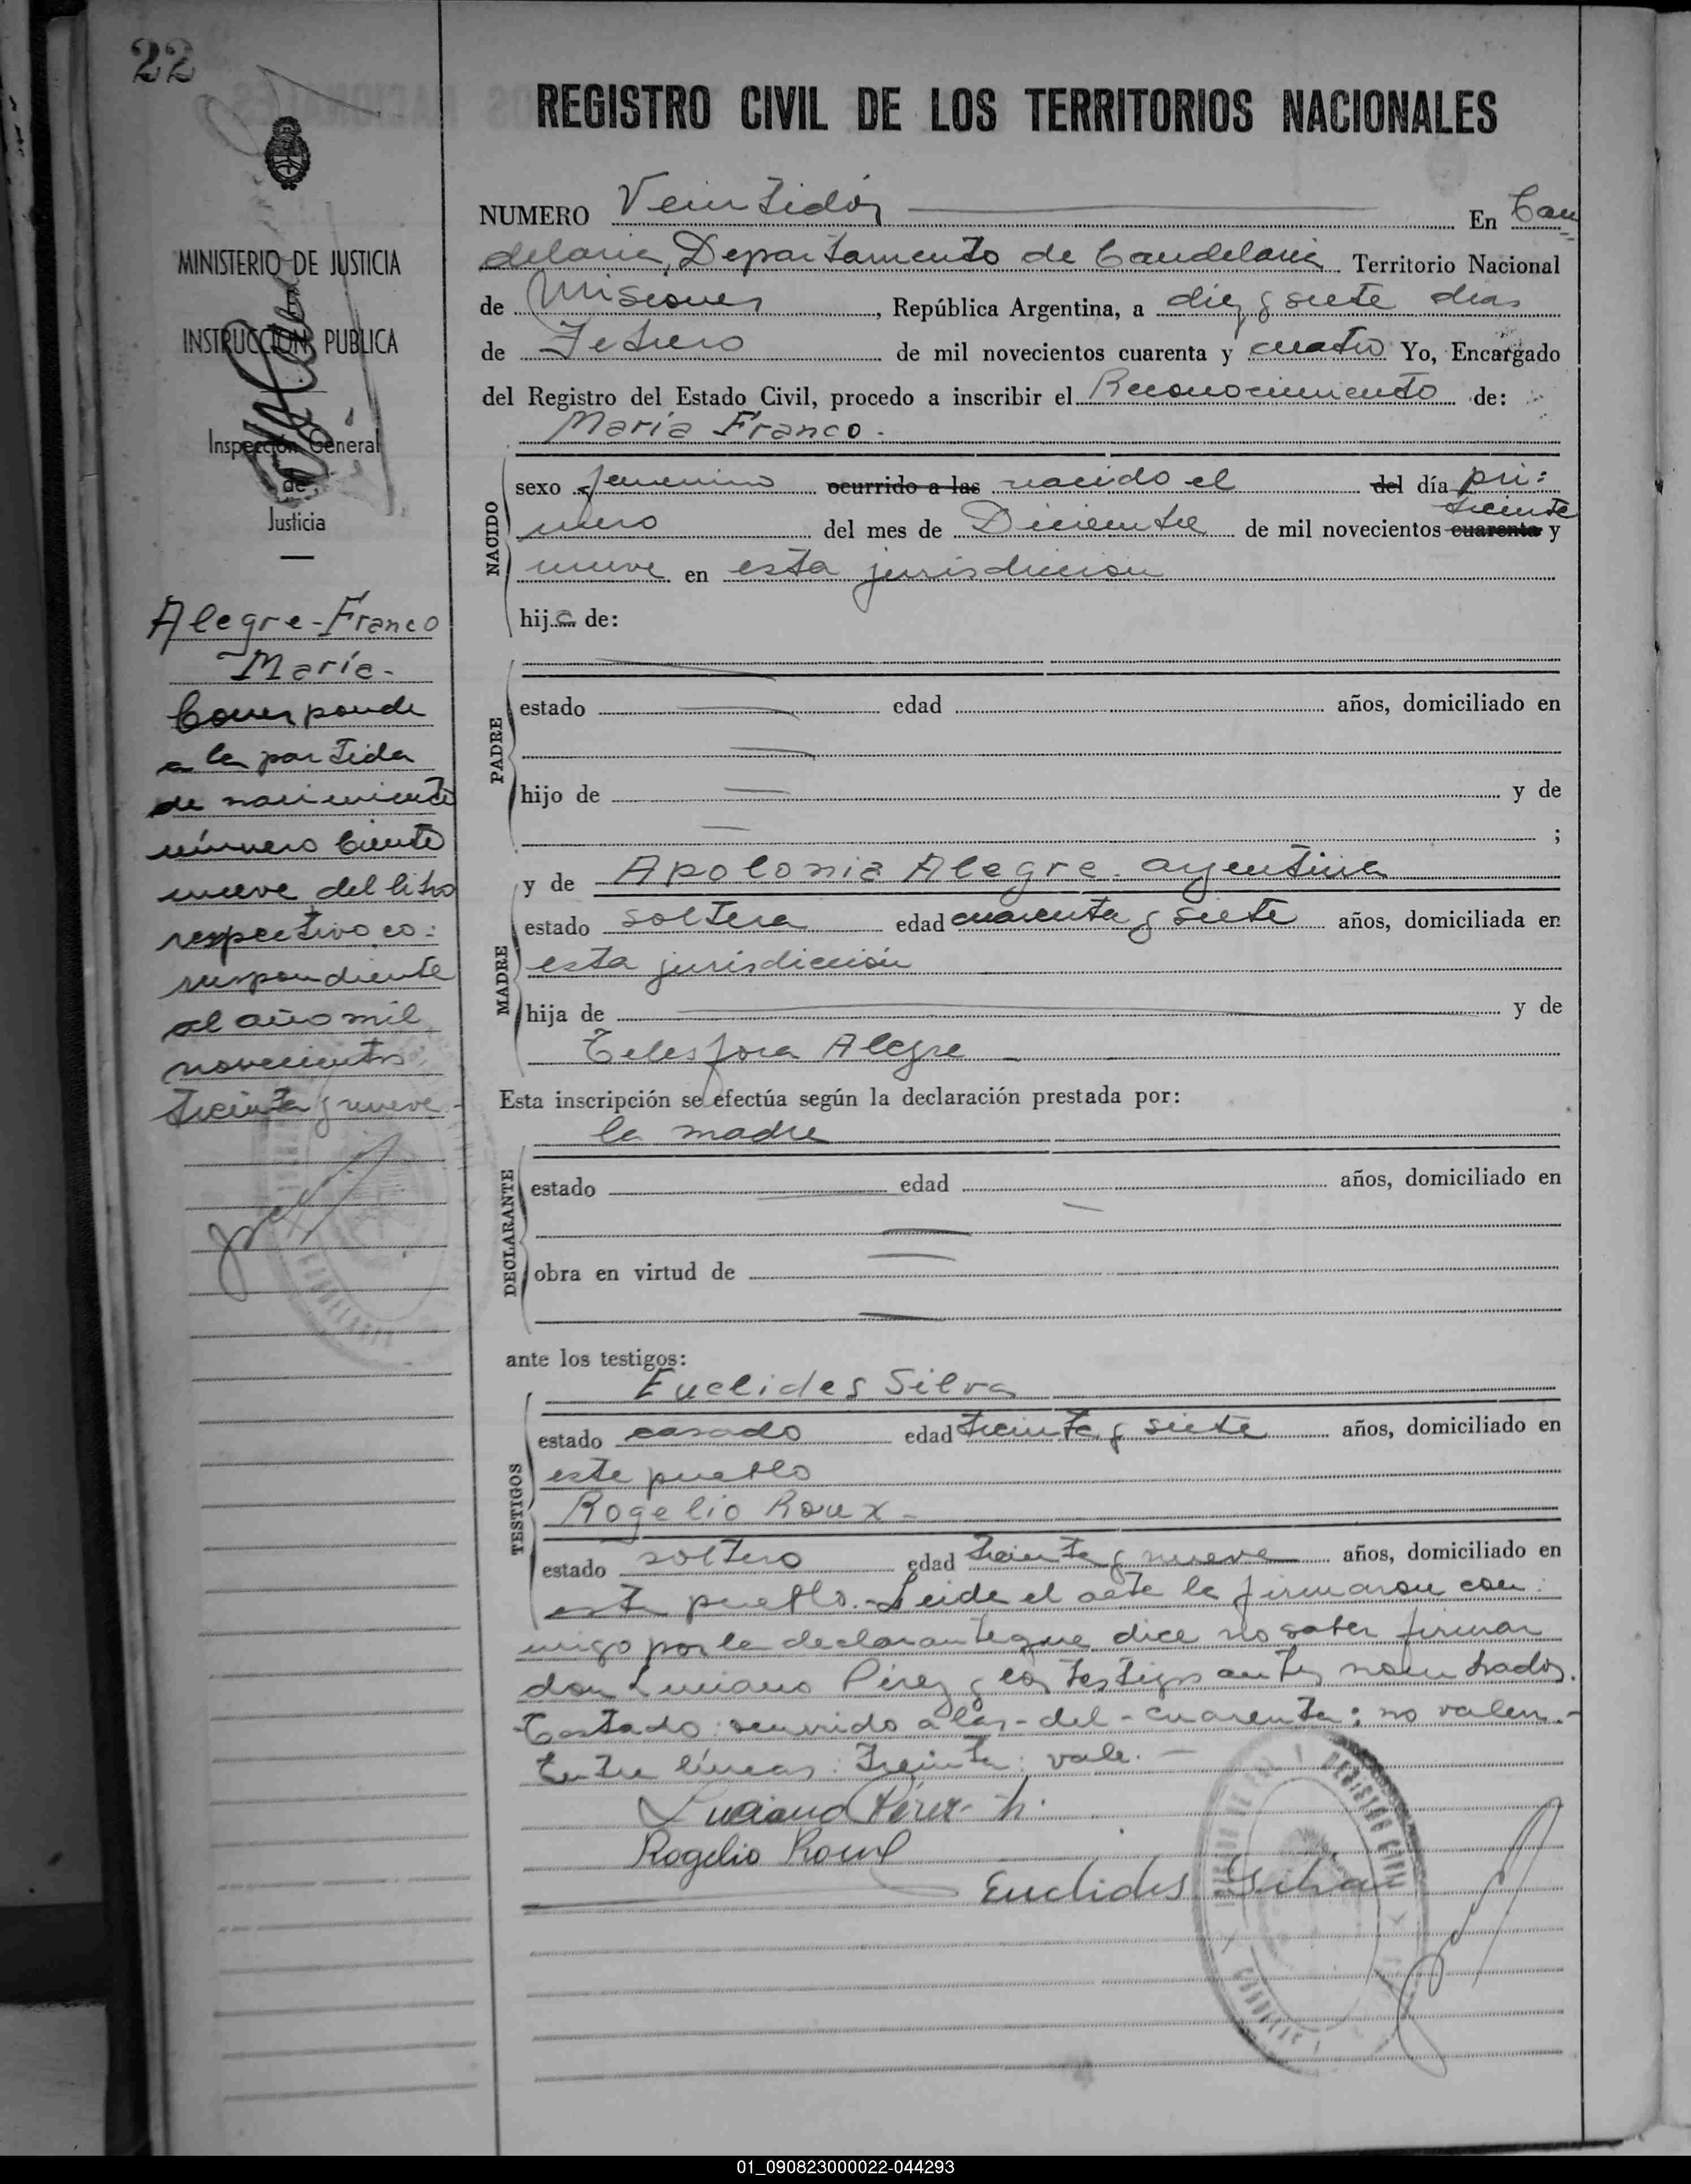 22
REGISTRO CIVIL DE LOS TERRITORIOS NACIONALES
MINISTERIO DE JUSTICIA
INSTRUCCION PUBLICA
Inspección General
de
Justicia
Alegre-Franco
María-
Corresponde
a la partida
de nacimiento
número ciento
nueve del libro
respectivo co:
rrespondiente
al año mil
novecientos
treinta y nueve.-
NUMERO Veintidós En Can
delaria, Departamento de Candelaria Territorio Nacional
de Misiones, República Argentina, a diez y siete días
de Febrero de mil novecientos cuarenta y cuatro Yo, Encargado
del Registro del Estado Civil, procedo a inscribir el Reconocimiento de:
María Franco.
NACIDO
sexo femenino ocurrido a las nacido el del día pri:
treinta
mero del mes de Diciembre de mil novecientos cuarenta y
nueve en esta jurisdiccion
hija de:
PADRE
estado edad años, domiciliado en
hijo de y de
;
y de Apolonia Alegre. argentina
MADRE
estado soltera edad cuarenta y siete años, domiciliada en
esta jurisdicción
hija de y de
Telesfora Alegre
Esta inscripción se efectúa según la declaración prestada por:
la madre
DECLARANTE
estado edad años, domiciliado en
obra en virtud de
ante los testigos:
TESTIGOS
Euclides Silva
estado casado edad treinta y siete años, domiciliado en
este pueblo
Rogelio Roux-
estado soltero edad treinta y nueve años, domiciliado en
este pueblo.- Leida el acta la firmaron con:
migo por la declarante que dice no saber firmar
don Luciano Pérez y los testigos antes nombrados.
Testado: ocurrido a las - del - cuarenta: no valen.-
Entre líneas: treinta: vale.-
Luciano Pérez h.
Rogelio Roux
Euclides Silva
REGISTRO CIVIL
CANDELARIA
01_090823000022-044293